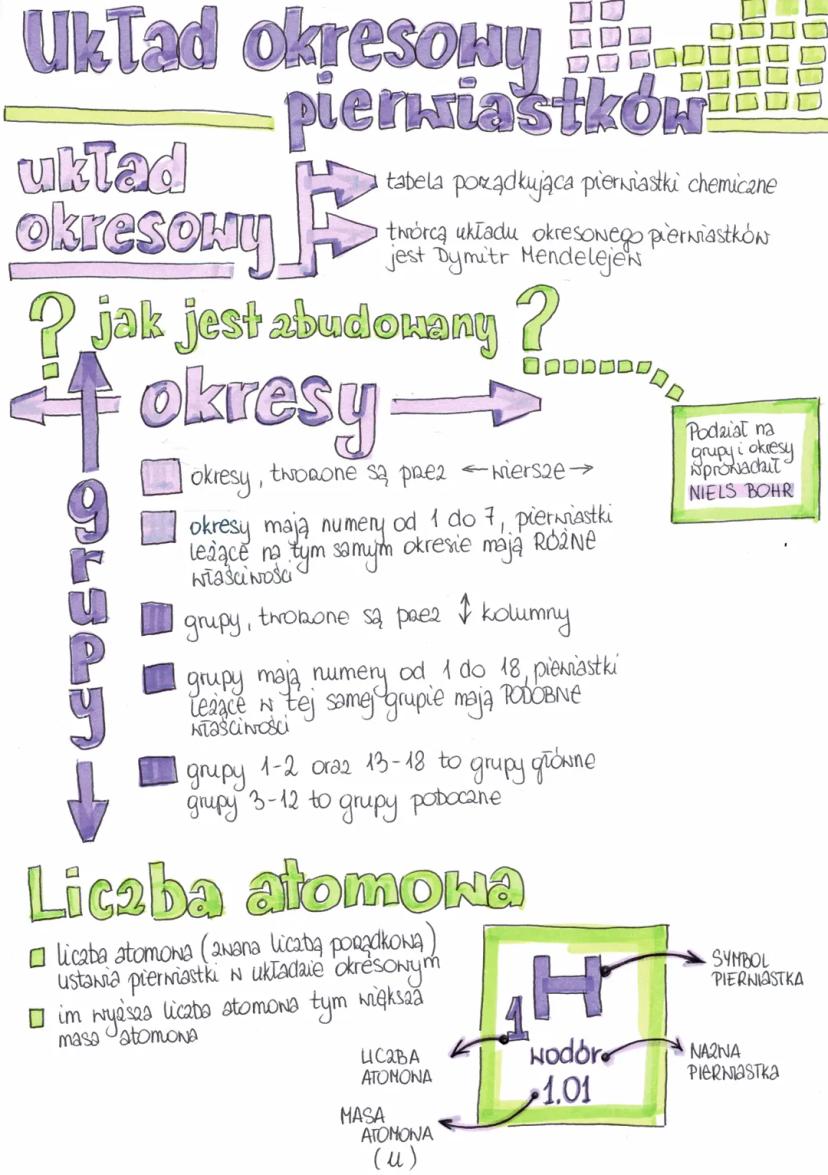 Układ okresowy
pierwiastków
układ
okresowy
tabela porządkująca pierwiastki chemiczne
twórcą układu okresowego pierwiastków
jest Dymitr Mendelejew
? jak jest zbudowany ?
okresy
Podział na
grupy i okresy
wprowadził
NIELS BOHR
grupy
okresy, tworzone są przez ←wiersze→
okresy mają numery od 1 do 7, pierwiastki
leżące na tym samym okresie mają RÓŻNE
właściwości
grupy, tworzone są przez ↕ kolumny
grupy mają numery od 1 do 18, pierwiastki
leżące w tej samej grupie mają PODOBNE
właściwości
grupy 1-2 oraz 13-18 to grupy główne
grupy 3-12 to grupy poboczne
Liczba atomowa
liczba atomowa (zwana liczbą porządkową)
ustawia pierwiastki w układzie okresowym
im wyższa liczba atomowa tym większa
masa atomowa
H
1
wodór
1.01
SYMBOL
PIERWIASTKA
LICZBA
ATOMOWA
NAZWA
PIERWIASTKA
MASA
ATOMOWA
(u)